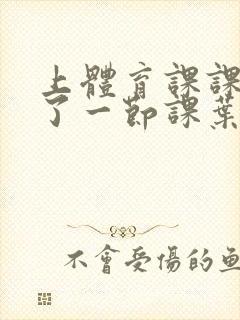 上體育課課
了一節課葉
不會受傷的魚